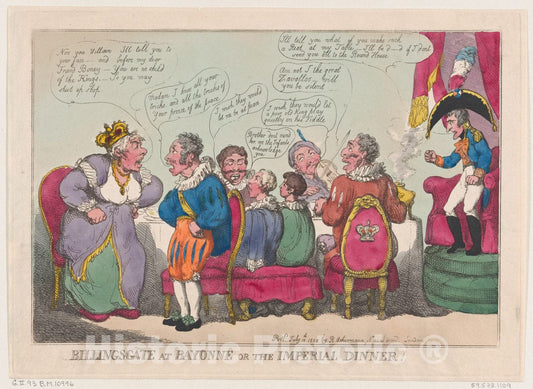 Now you Villain I'll tell you to
your face — and before my dear
Friend Boney — You are no child
of the Kings — So you may
shut up Shop
Madam I know all your
tricks and all the tricks of
Your prince of the peace
I wish they would
let me be at peace
Brother don't mind
her we the Infants
acknowledge
you
I wish they would let
a poor old King Play
quietly on his Fiddle
Am not I the great
Napolleon will
you be silent
I'll tell you what if you make such
a Riot at my Table — I'll be d—d if I dont
send you all to the Round House
Publ July 10 1808 by R. Ackermann N 101 Strand London
BILLINGSGATE AT BAYONNE OR THE IMPERIAL DINNER!
Historic Pictoric®
G. II 93 B.M. 10996
59.533.1109